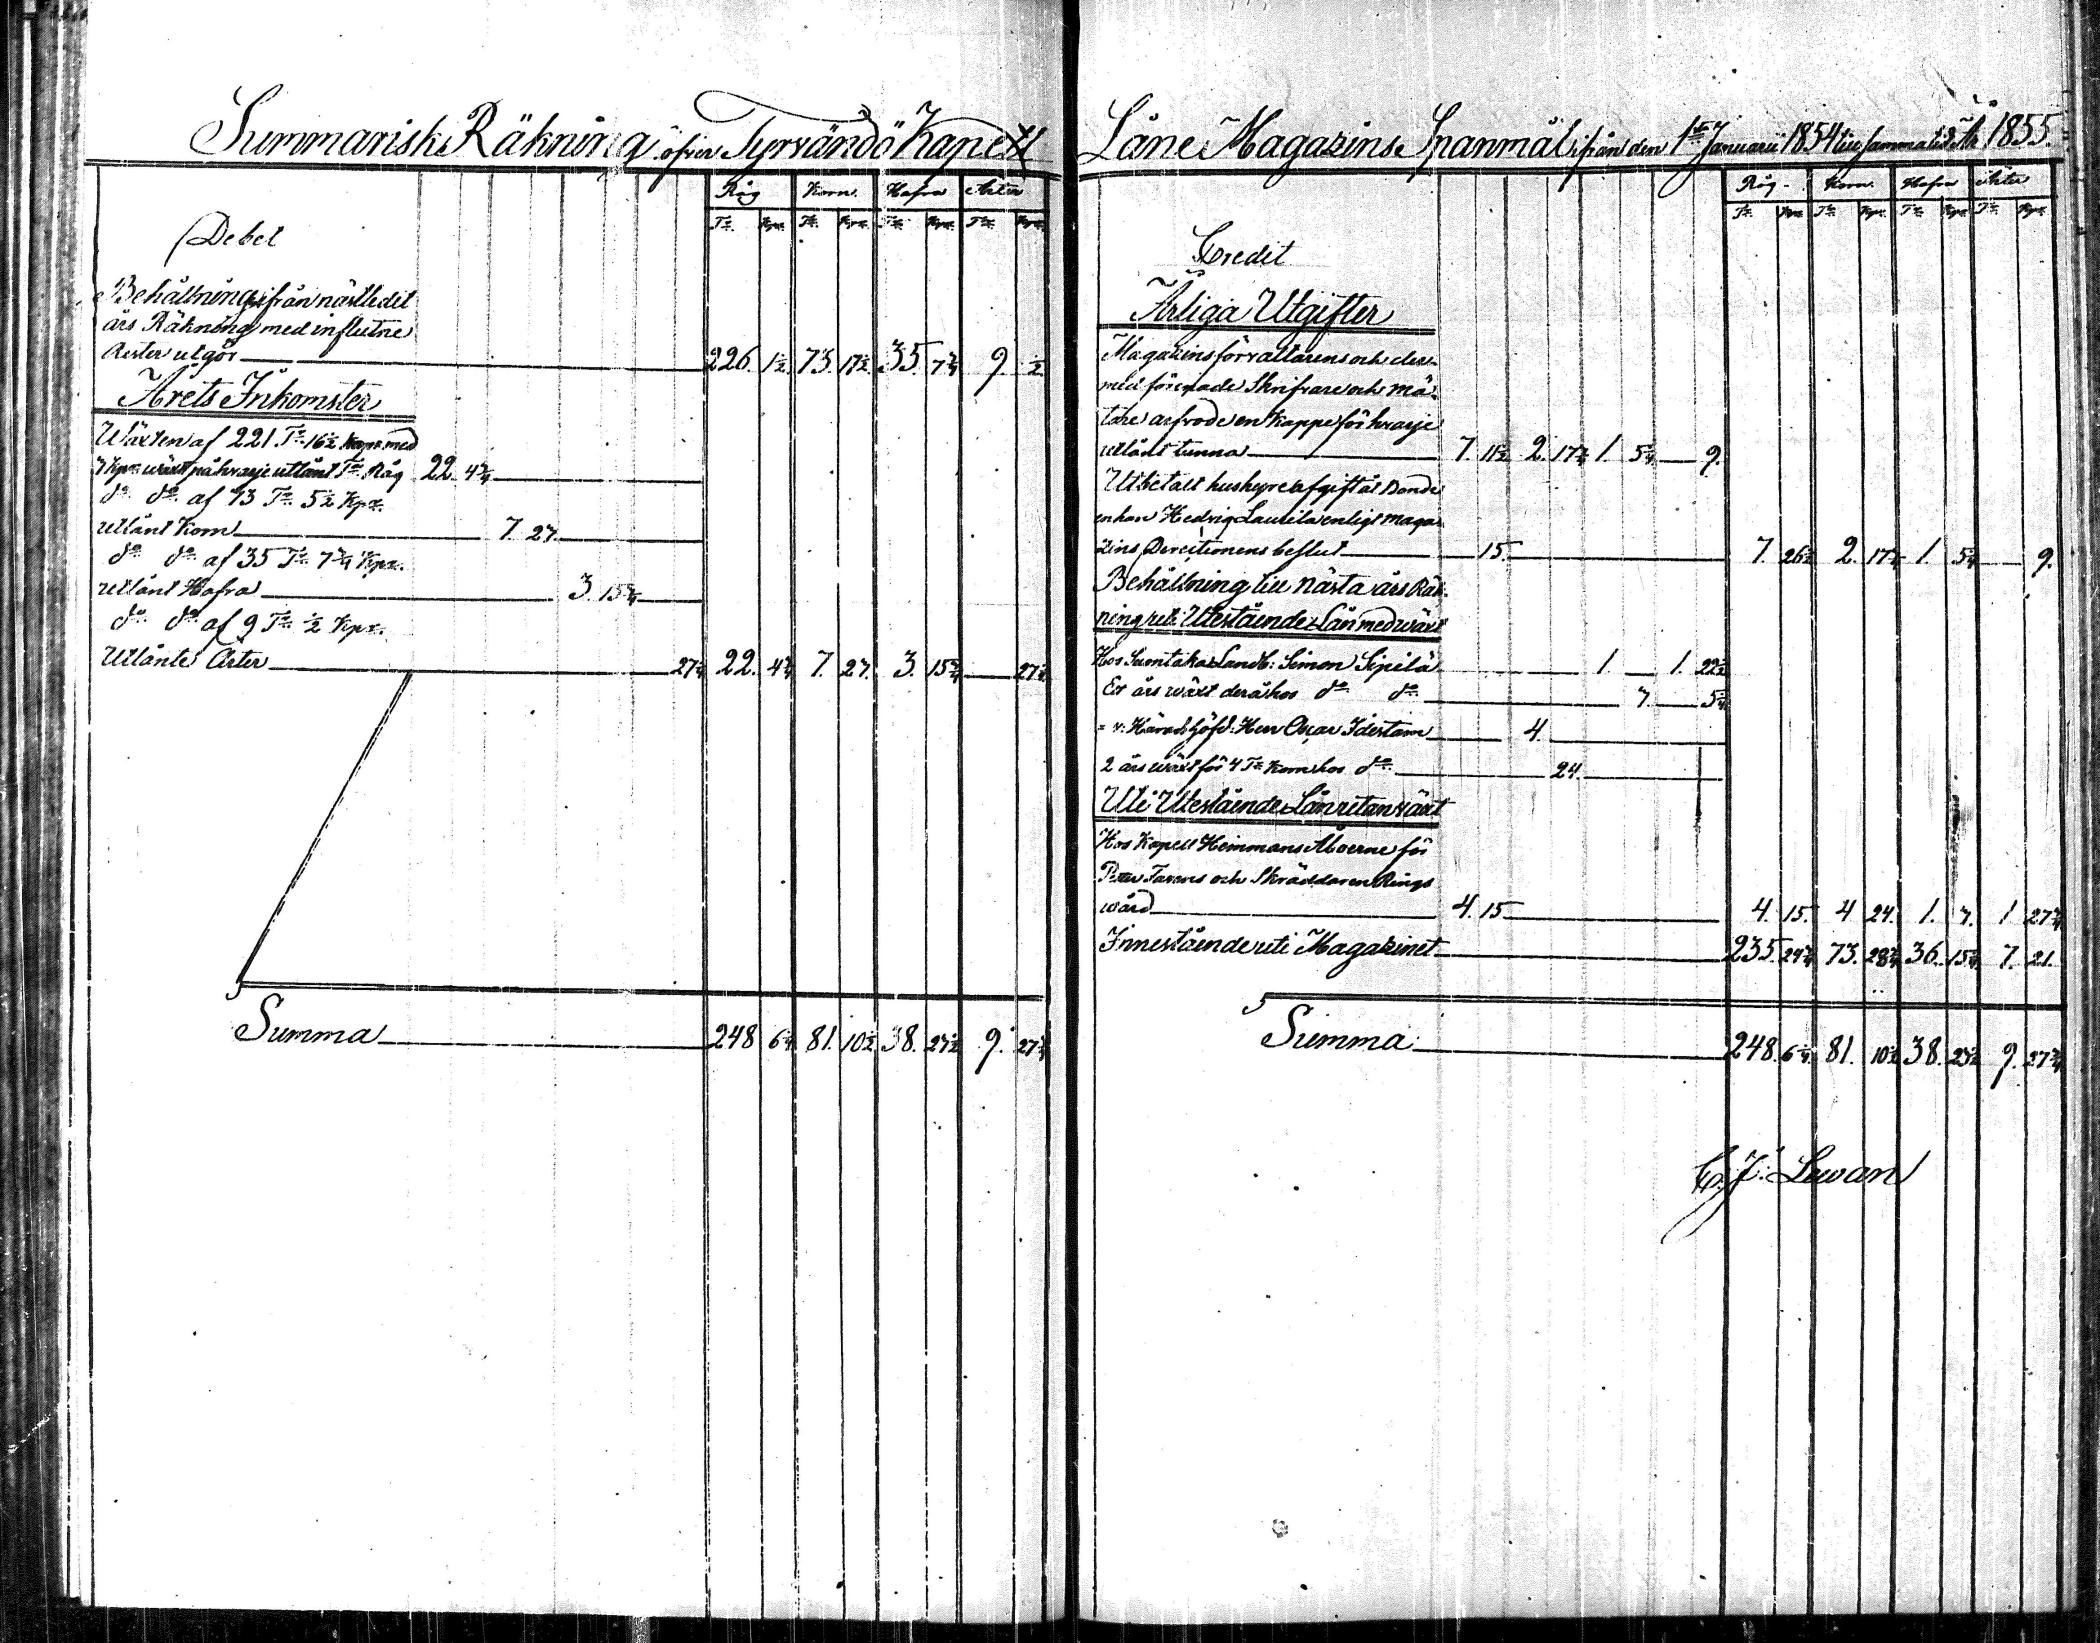 Summarisk Räkning öfver Tyrvändö Kapell
Råg Korn. Hafra Ärter
Tr. Kpr. Tr. Kpr. Tr. Kpr. Tr. Kpr.
Debet
Behållning ifrån nästledit
års Räkning med influtne
Rester utgör 226. 1½ 73. 17½ 35 7¾ 9. ½
Årets Inkomster
Wäxten af 221 Tr. 16½ Kapr. med
3 Kpr. wäxt på hvarje utlånt Tr. Råg 22. 4¾
do do af 73 Tr. 5½ Kpr.
utlånt Korn 7. 27.
do do af 35 Tr. 7¾ Kpr.
utlånt Hafra 3. 15¾
do do af 9 Tr. ½ Kpr.
Utlånte Ärter 27¼ 22. 4¾ 7. 27. 3. 15¾ 27¼
Summa 248 6¼ 81. 10½ 38. 23½ 9. 27¾
Låne Magazins Spanmål ifrån den 1sta Januarii 1854 till samma tid År 1855.
Råg. Korn. Hafra Ärter
Tr. Kpr. Tr. Kpr. Tr. Kpr. Tr. Kpr.
Credit
Årliga Utgifter
Magazinsförvaltarens och der-
med förenade Skrifvare och Mä-
tare arfvode en Kappe för hvarje
utlånt tunna 7. 11½ 2. 17¼ 1. 5¼ 9.
Utbetalt hushyre afgift åt Bonde
enkan Hedvig Laurila enligt Maga-
zins Direcitionens beslut 15. 7. 26½ 2. 17¼ 1. 5¼ 9.
Behållning till nästa års Räk-
ning uti Utestående Lån med wäxt
Hos Suntaka Landb: Simon Sipilä 1. 1. 22½
Ett års wäxt derå hos do do 3. 5¼
= v: Härads Höfd: Herr Oscar Idestam 4.
2 års wäxt för 4 Tr. Korn hos do 24.
Uti Utestående Lån utan wäxt
Hos Kapell Hemmans Åboerne för
Peter Tavens och Skräddaren Rings
wård 4. 15. 4. 15. 4 24. 1. 3. 1 27¾
Innestående uti Magazinet 235. 24¾ 73. 28¾ 36. 15¼ 7. 21.
Summa 248. 6¼ 81. 10½ 38. 23½ 9. 27¾
Lewan